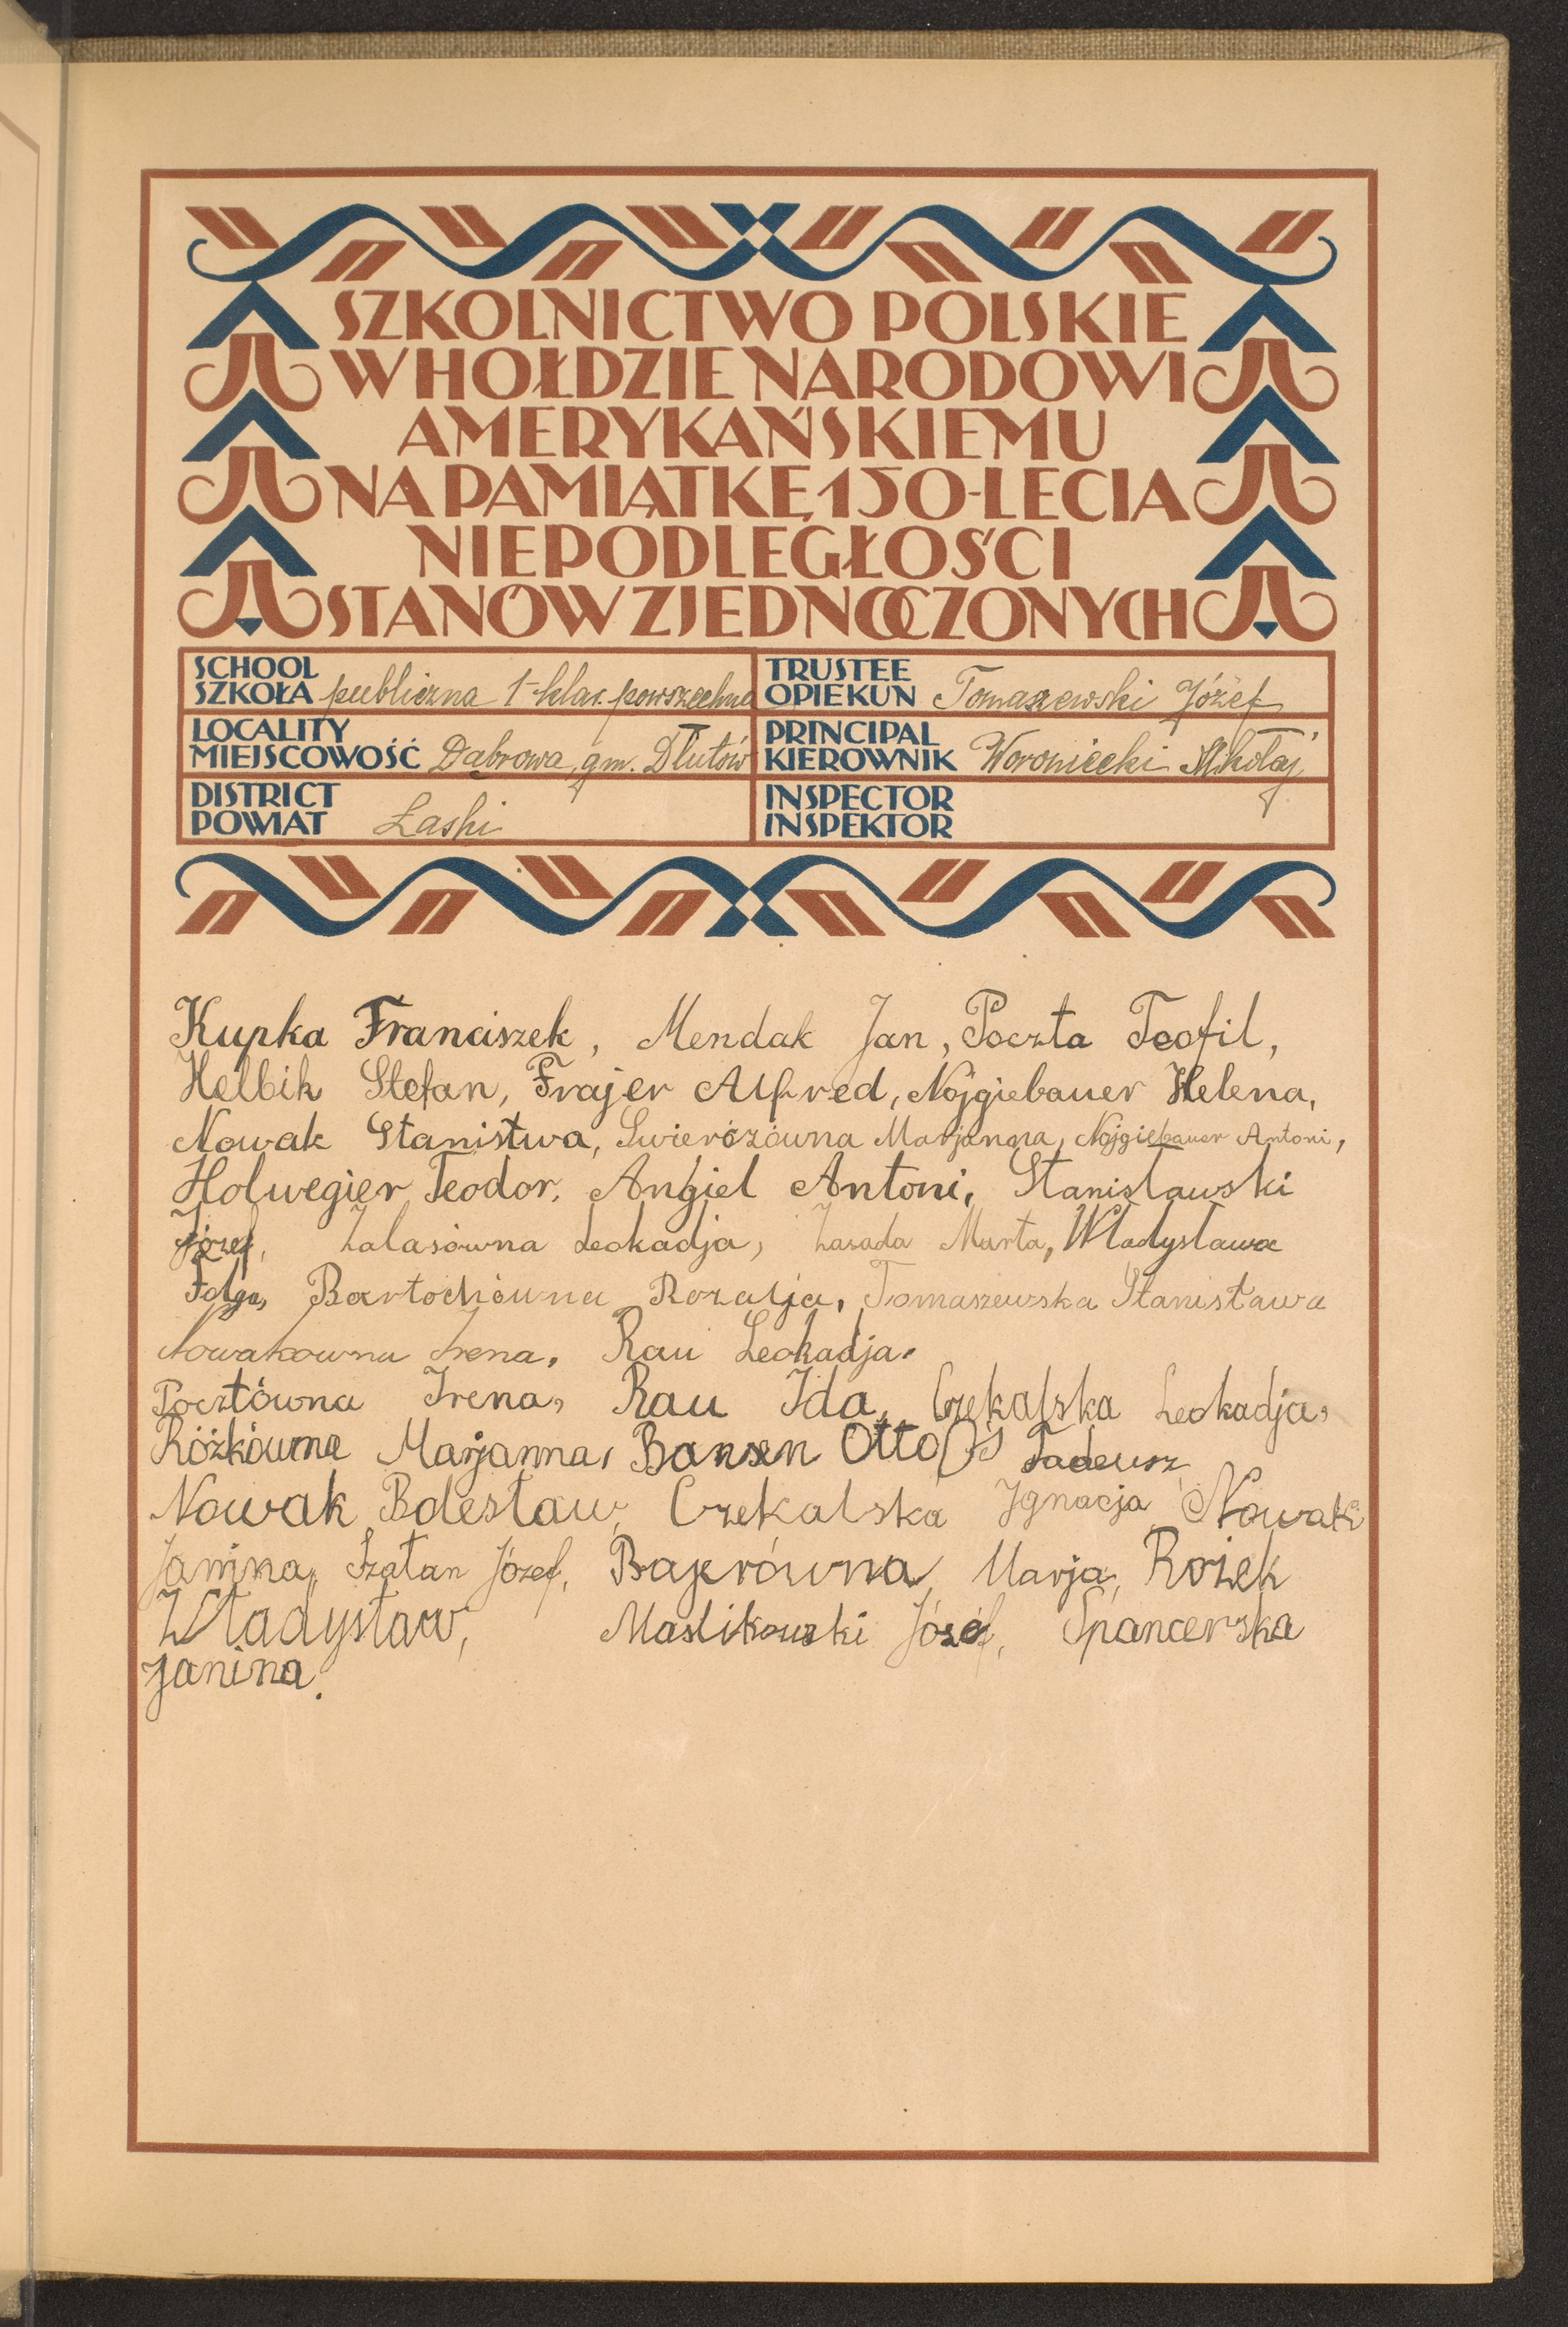 SZKOLNICTWO POLSKIE
W HOŁDZIE NARODOWI
AMERYKAŃSKIEMU
NA PAMIĄTKĘ 150-LECIA
NIEPODLEGŁOŚCI
STANÓW ZJEDNOCZONYCH
SCHOOL
SZKOŁA publiczna 1-klas. powszechna
TRUSTEE
OPIEKUN Tomaszewski Józef
LOCALITY
MIEJSCOWOŚĆ Dąbrowa, gm. Dłutów
PRINCIPAL
KIEROWNIK Woroniecki Mikołaj
DISTRICT
POWIAT Łaski
INSPECTOR
INSPEKTOR
Kupka Franciszek, Mendak Jan, Poczta Teofil,
Helbik Stefan, Frajer Alfred, Nojgiebauer Helena,
Nowak Stanistwa, Swierózówna Marjanna, Nojgiebauer Antoni,
Holwegier Teodor, Angiel Antoni, Stanisławski
Józef, Zalasówna Leokadja, Zasada Marta, Władysława
Folga, Bartochówna Rozalja, Tomaszewska Stanisława
Nowakowna Irena, Rau Leokadja.
Pocztówna Irena, Rau Ida, Czekalska Leokadja,
Różkówna Marjanna, Otto Tadeusz
Nowak Bolesław, Czekalska Ignacja, Nowak
Janina, Szatan Józef, Bajerówna Marja, Rożek
Władysław, Maslikowski Józef, Spancerska
Janina.